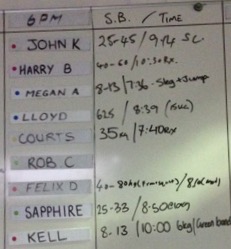 6PM S.B. / TIME
JOHN K 25-45/9:14 SC.
HARRY B 40-60/10:30RX.
MEGAN A 8-13/7:36 5kg+Jump
LLOYD 625/8:39 (SUC)
COURTS 35m/7:40RX
ROB.C
FELIX D 40-80kg
SAPPHIRE 25-33/8:50
KELL 8-13/10:00 6kg/Green band